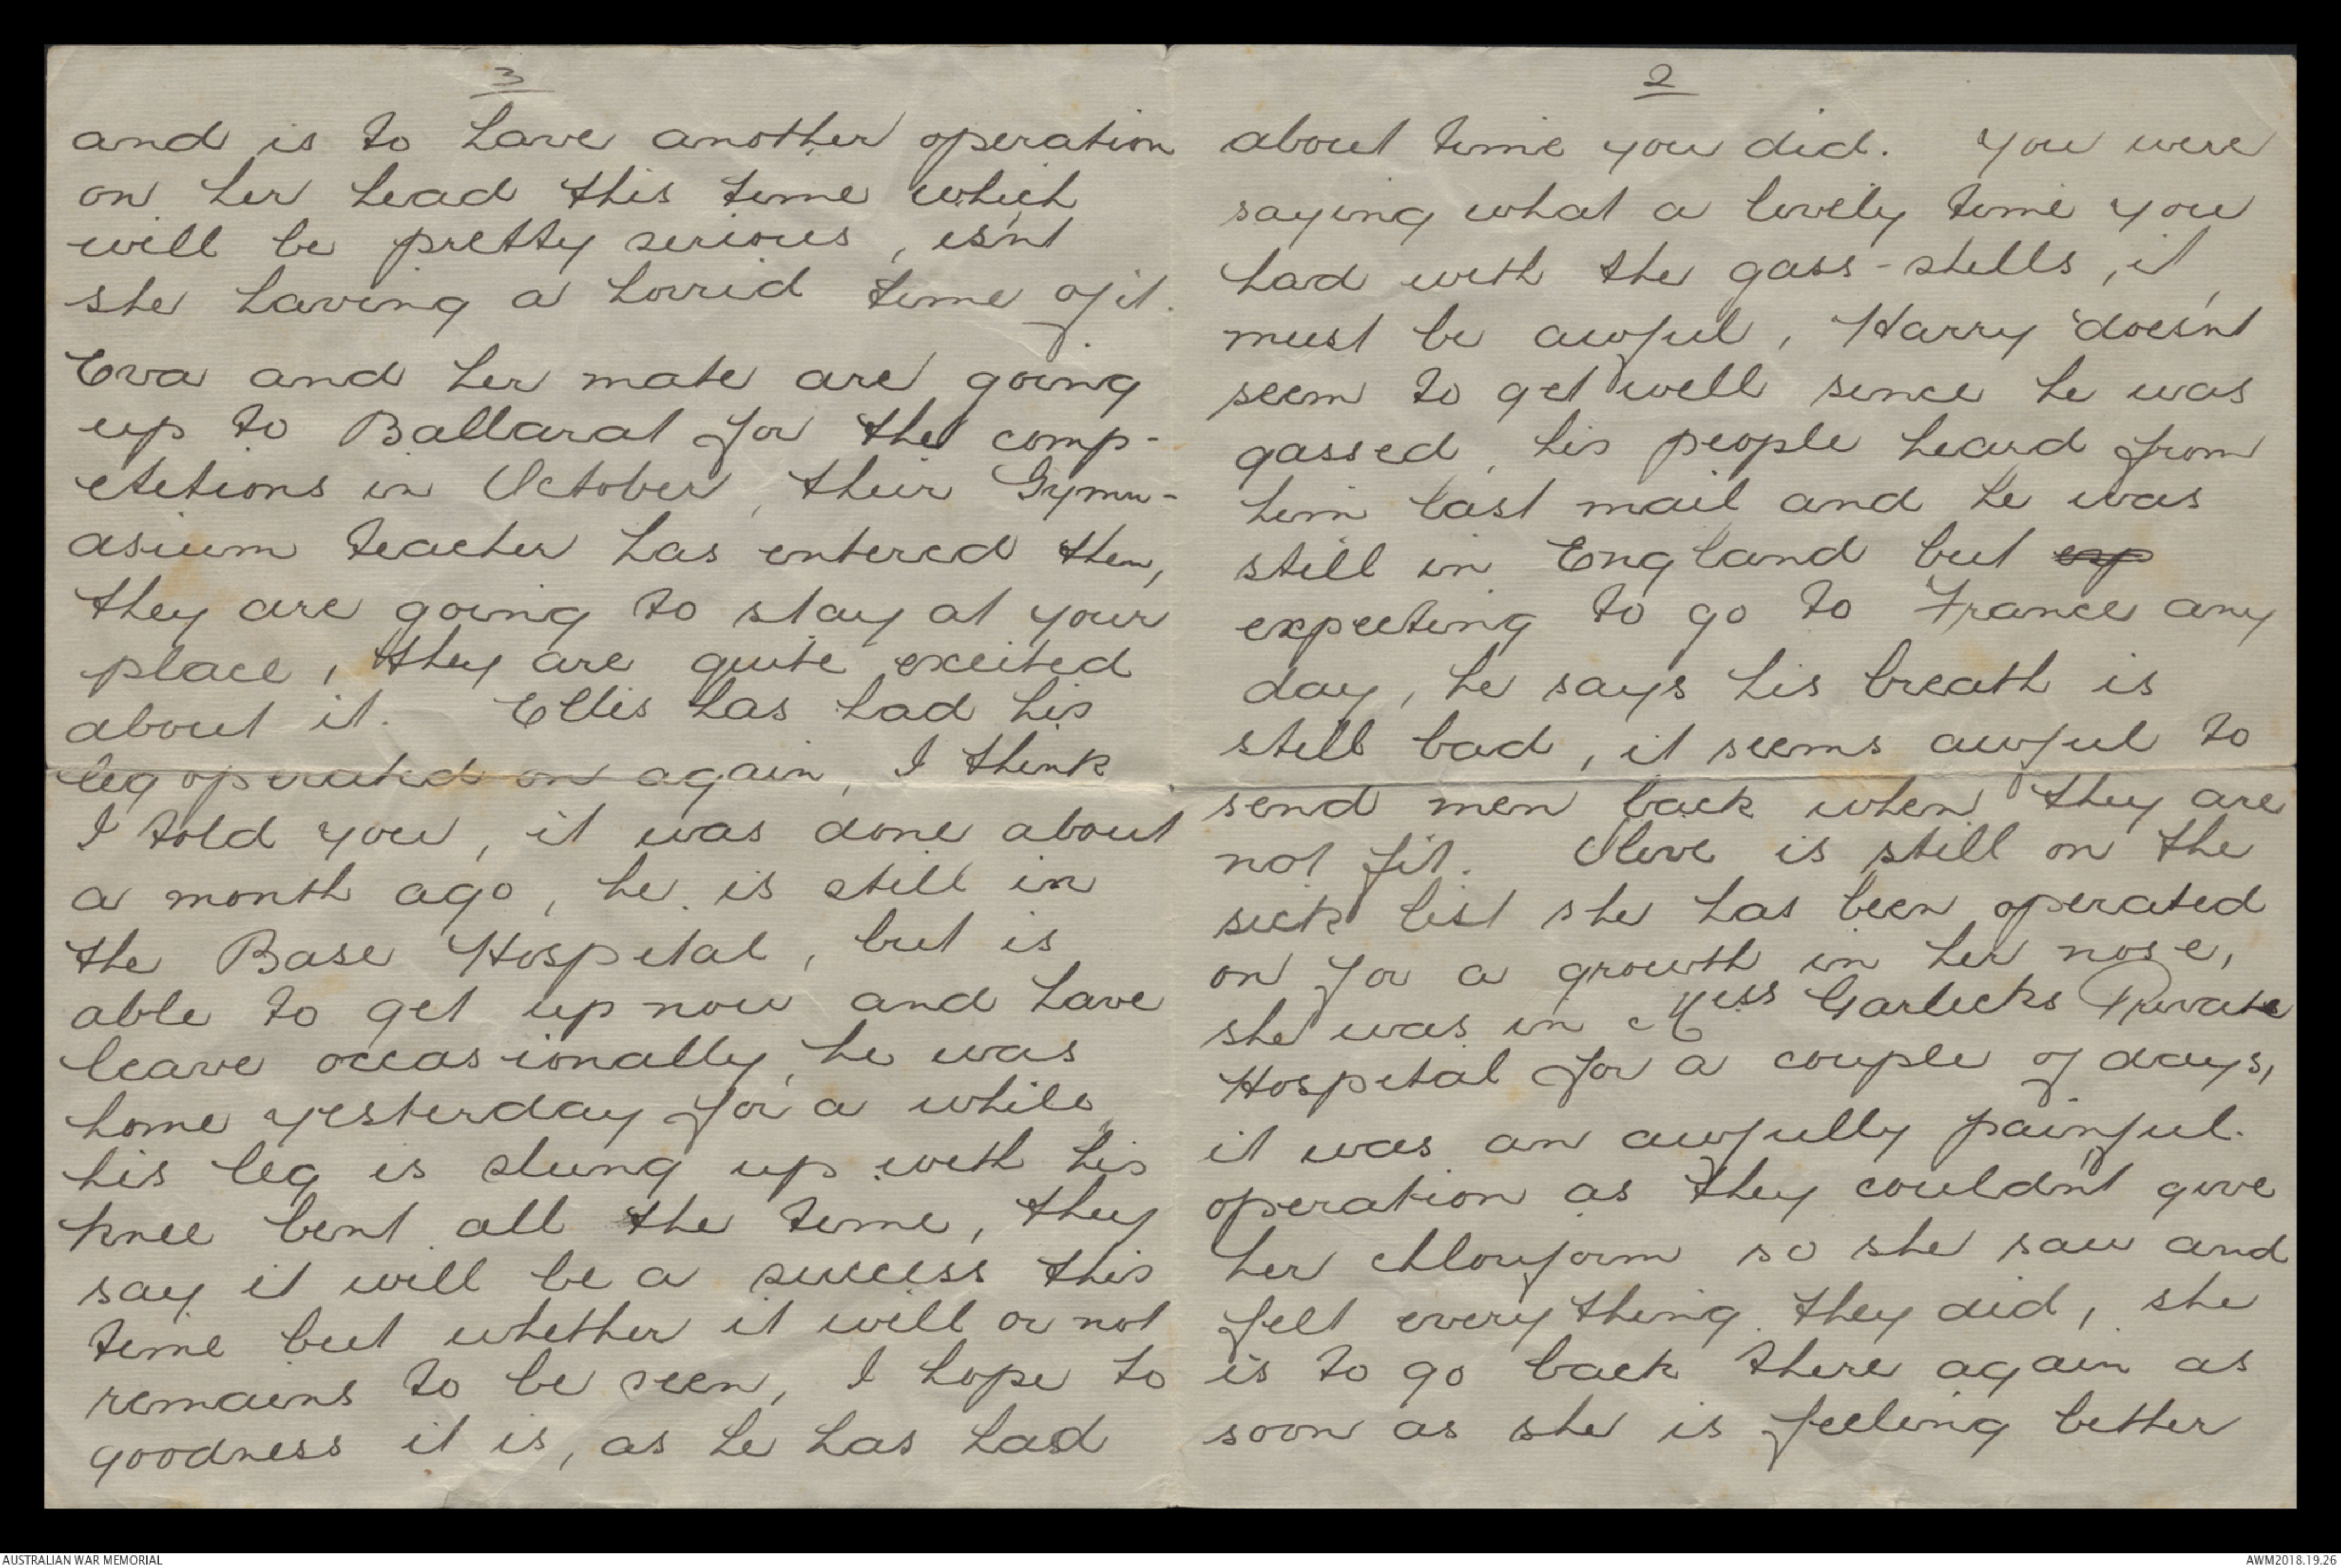 2
about time you did. You were
saying what a lovely time you
had with the gass-shells, it
must be awful, Harry doesn't
seem to get well since he was
gassed, his people heard from
him last mail and he was
still in England but exp
expecting to go to France any
day, he says his breath is
still bad, it seems awful to
send men back when they are
not fit. Olive is still on the
sick list she has been operated
on for a growth in her nose,
she was in Miss Garlicks Private
Hospital for a couple of days,
it was an awfully painful.
operation as they couldn't give
her chloroform so she saw and
felt everything they did, she
is to go back there again as
soon as she is feeling better
3
and is to have another operation
on her head this time which
will be pretty serious, isn't
she having a horrid time of it.
Eva and her mate are going
up to Ballarat for the comp-
etitions in October, their Gymn-
asium teacher has entered them,
they are going to stay at your
place, they are quite excited
about it. Ellis has had his
leg operated on again, I think
I told you, it was done about
a month ago, he is still in
the Base Hospital, but is
able to get up now and have
leave occasionally, he was
home yesterday for a while,
his leg is slung up with his
knee bent all the time, they
say it will be a success this
time but whether it will or not
remains to be seen, I hope to
goodness it is, as he has had
AUSTRALIAN WAR MEMORIAL
AWM2018.19.26